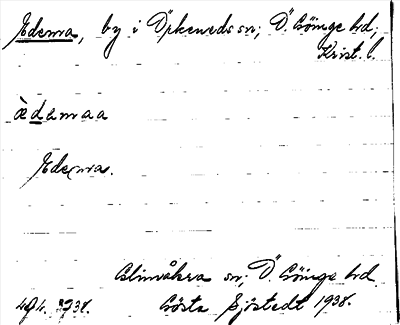 Edema, by i Örkeneds sn; Ö. Göinge hd;
Krist. l.
èdemaa
Edema.
Glimåkra sn; Ö. Göinge hd
Gösta Sjöstedt 1938.